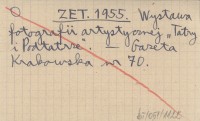 ZET. 1955. Wystawa
fotografii artystycznej „Tatry
i Podtatrze". — Gazeta
Krakowska nr 70.